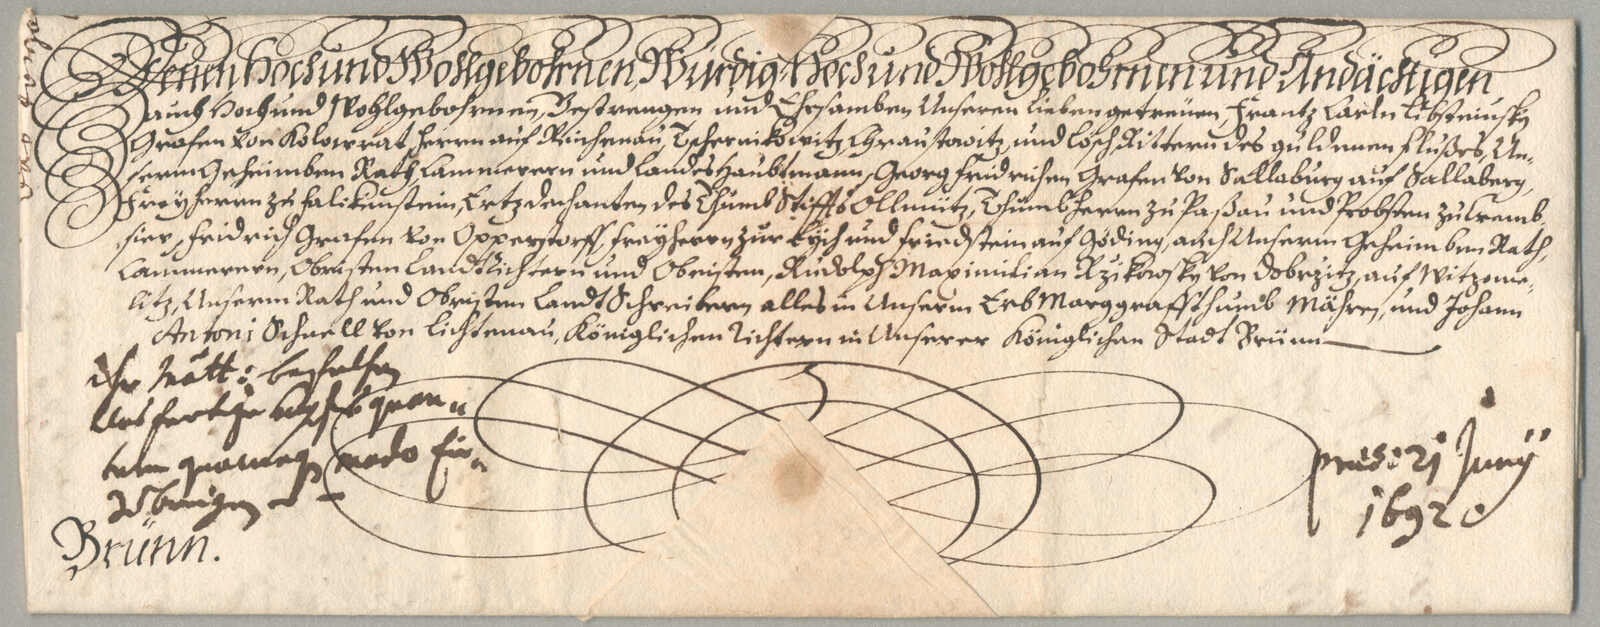 Denen Hoch und Wohlgebohrnen, Würdig, Hoch und Wohlgebohrnen und Andächtigen
auch Hoch und Wohlgebohrnen, Gestrengen und Ehrsamben Unseren lieben getreüen, Frantz Carln Libsteinsky
Grafen von Kolowrat, herrn auf Reichenau, Tschernikowitz, Chraustowitz, und Losch, Rittern des guldenen flußes, Un-
serm Geheimben Rath, Cammerern und Landes Haubtmann, Georg fridrichen Grafen von Sallaburg auf Sallaberg,
Freyherrn zu falkenstein, Ertzdechanten des Thumb Stiffts Ollmütz, Thumbherrn zu Paßau und Probsten zu Cremb-
sier, fridrich Grafen von Oppersdorff, freyherrn zur Eych und friedstein auf Göding, auch Unserm Geheimben Rath,
Cammerern, Obristen Landt Richtern und Obristen, Rudolph Maximilian Rzikowsky von Dobrzitz, auf Witzome-
litz, Unserm Rath und Obristen Landt Schreibern alles in Unserm Erb Marggraffthumb Mähren, und Johann
Antoni Schnell von Lichtenau, Königlichen Richtern in Unserer Königlichen Stadt Brünn
Ihr Mätt: befehlen
quan-
tum modo ein-
zubringen
Brünn.
praes: 21 Juny
1692